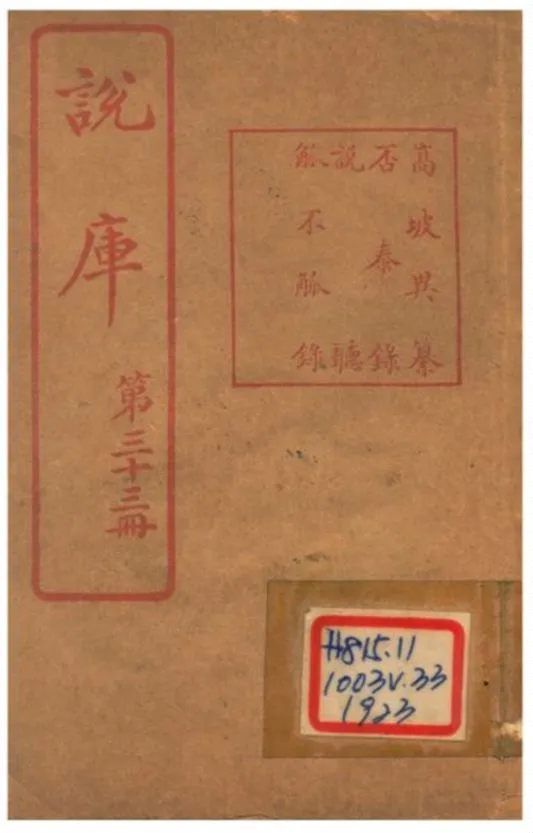 高坡異纂
否泰錄
說聽
觚不觚錄
說庫
第三十三冊
H815.11
1003V.33
1923